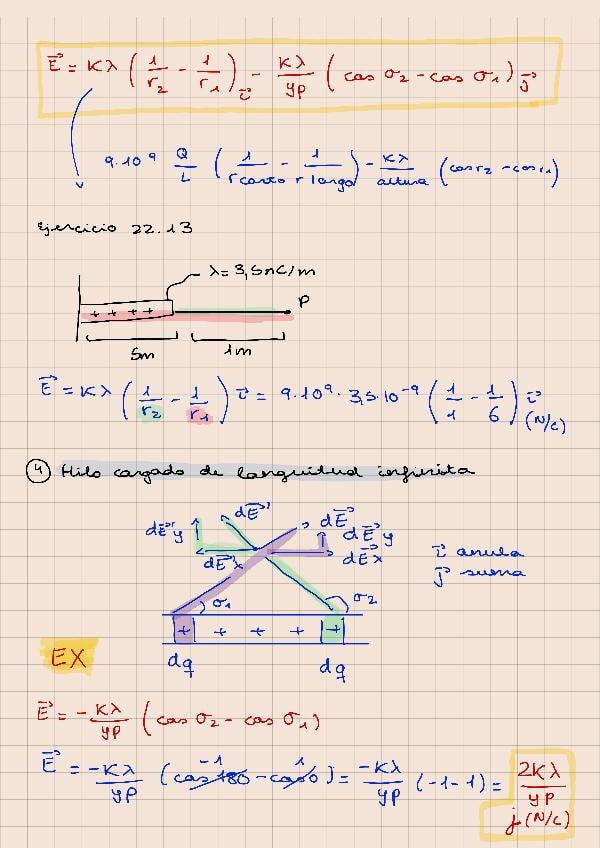 E⃗ = Kλ (1/r₂ - 1/r₁) i⃗ - Kλ/yp (cos σ₂ - cos σ₁) j⃗
9·10⁹ Q/L (1/r corto - 1/r largo) - Kλ/altura (cos r₂ - cos r₁)
Ejercicio 22.13
λ = 3,5nC/m
+ + + + P
5m 1m
E⃗ = Kλ (1/r₂ - 1/r₁) i⃗ = 9·10⁹ · 3,5·10⁻⁹ (1/1 - 1/6) i⃗ (N/C)
④ Hilo cargado de longuitud infinita
dE⃗'y dE⃗' dE⃗ dE⃗y
dE⃗'x dE⃗x
i⃗ anula
j⃗ suma
σ₁ σ₂
+ + + + +
dq dq
EX
E⃗ = -Kλ/yp (cos σ₂ - cos σ₁)
E⃗ = -Kλ/yp (cos 180 -1 - cos 0 1) = -Kλ/yp (-1-1) = 2Kλ/yp j (N/C)